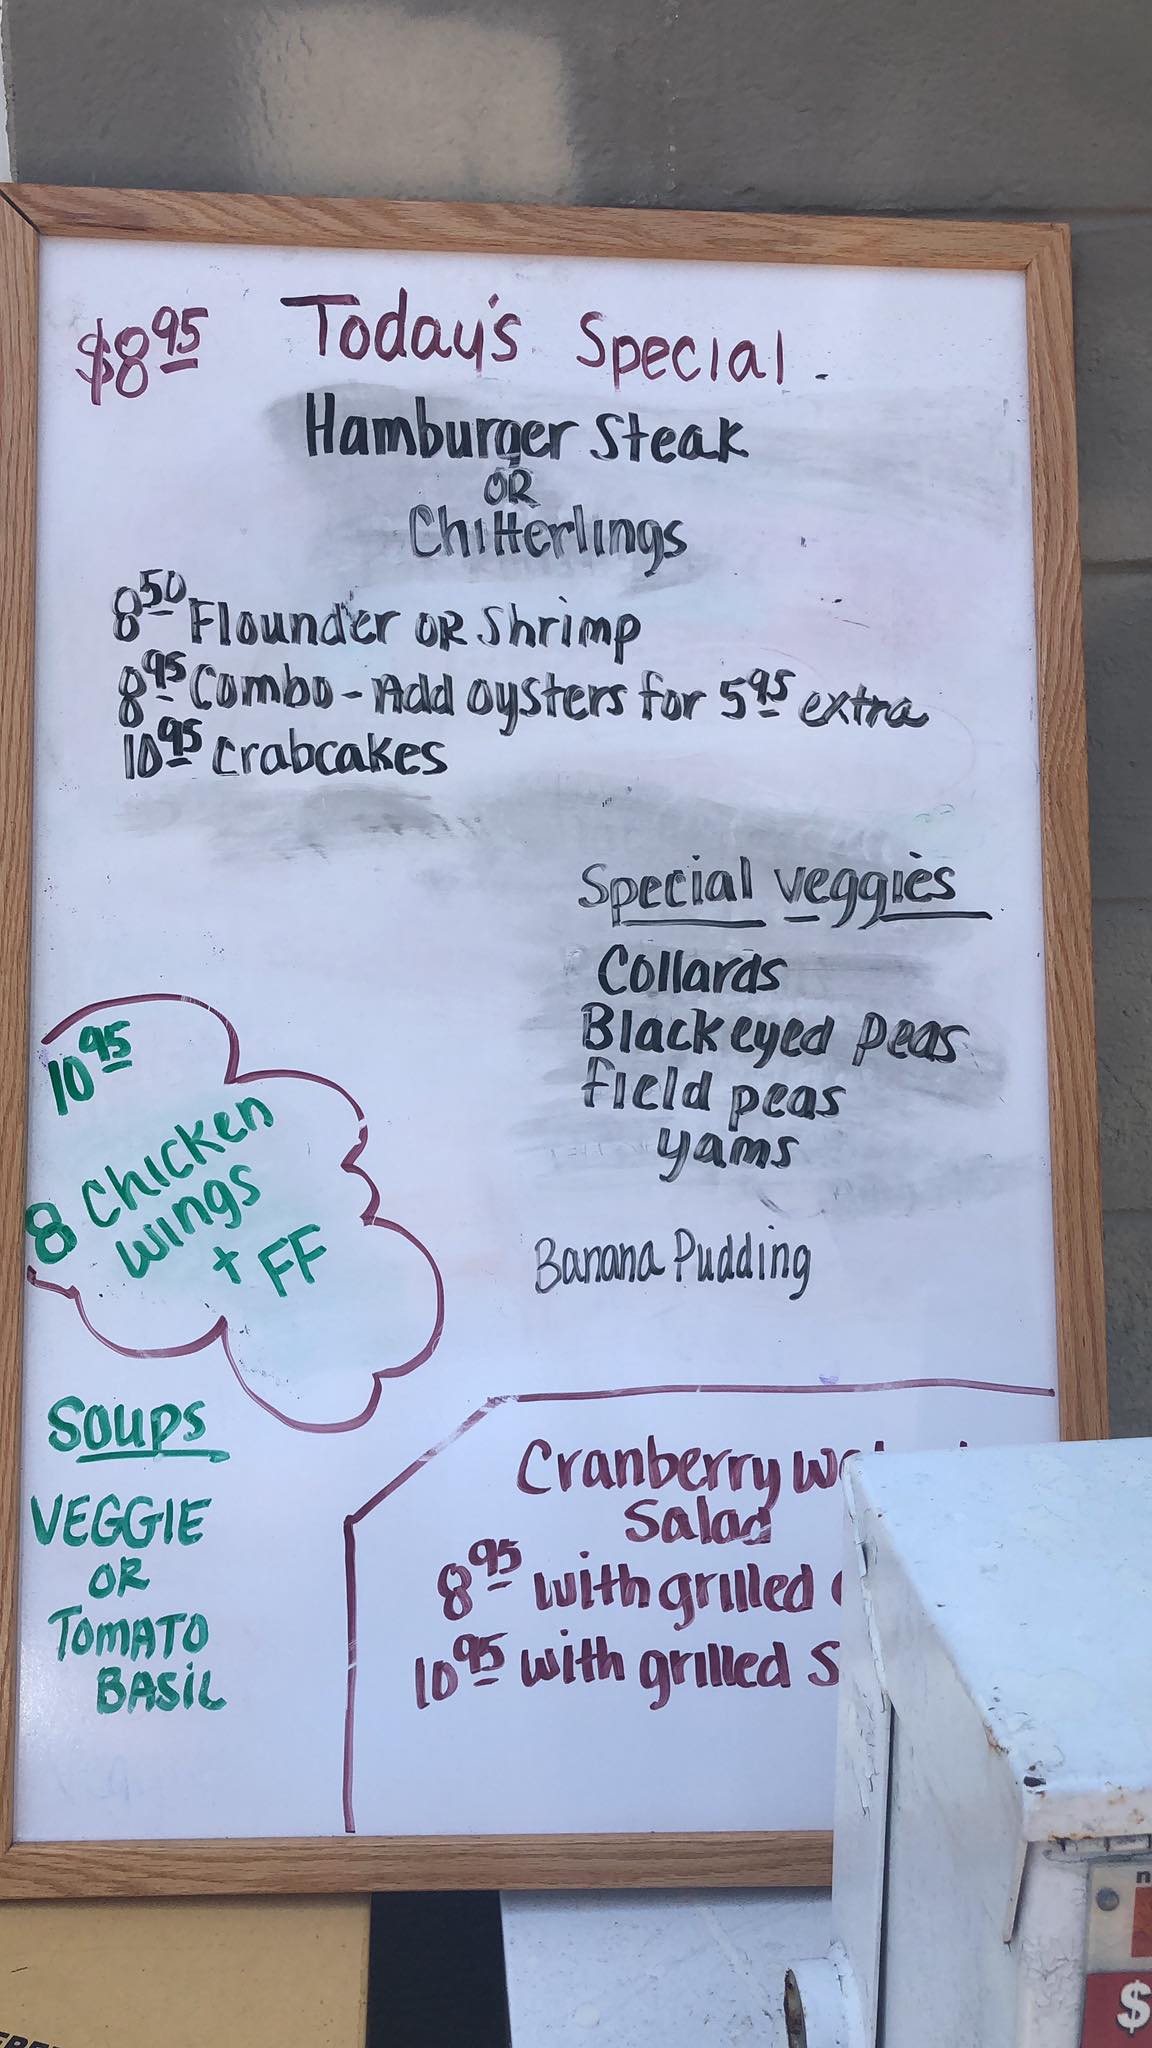 $8.95 Today's Special
Hamburger Steak
OR
Chitterlings
8.50 Flounder OR Shrimp
8.95 Combo - Add oysters for 5.95 extra
10.95 Crabcakes
Special veggies
Collards
Blackeyed peas
field peas
yams
Banana Pudding
10.95
8 Chicken
wings
+ FF
Soups
VEGGIE
OR
TOMATO
BASIL
Cranberry
Salad
8.95 with grilled
10.95 with grilled
$